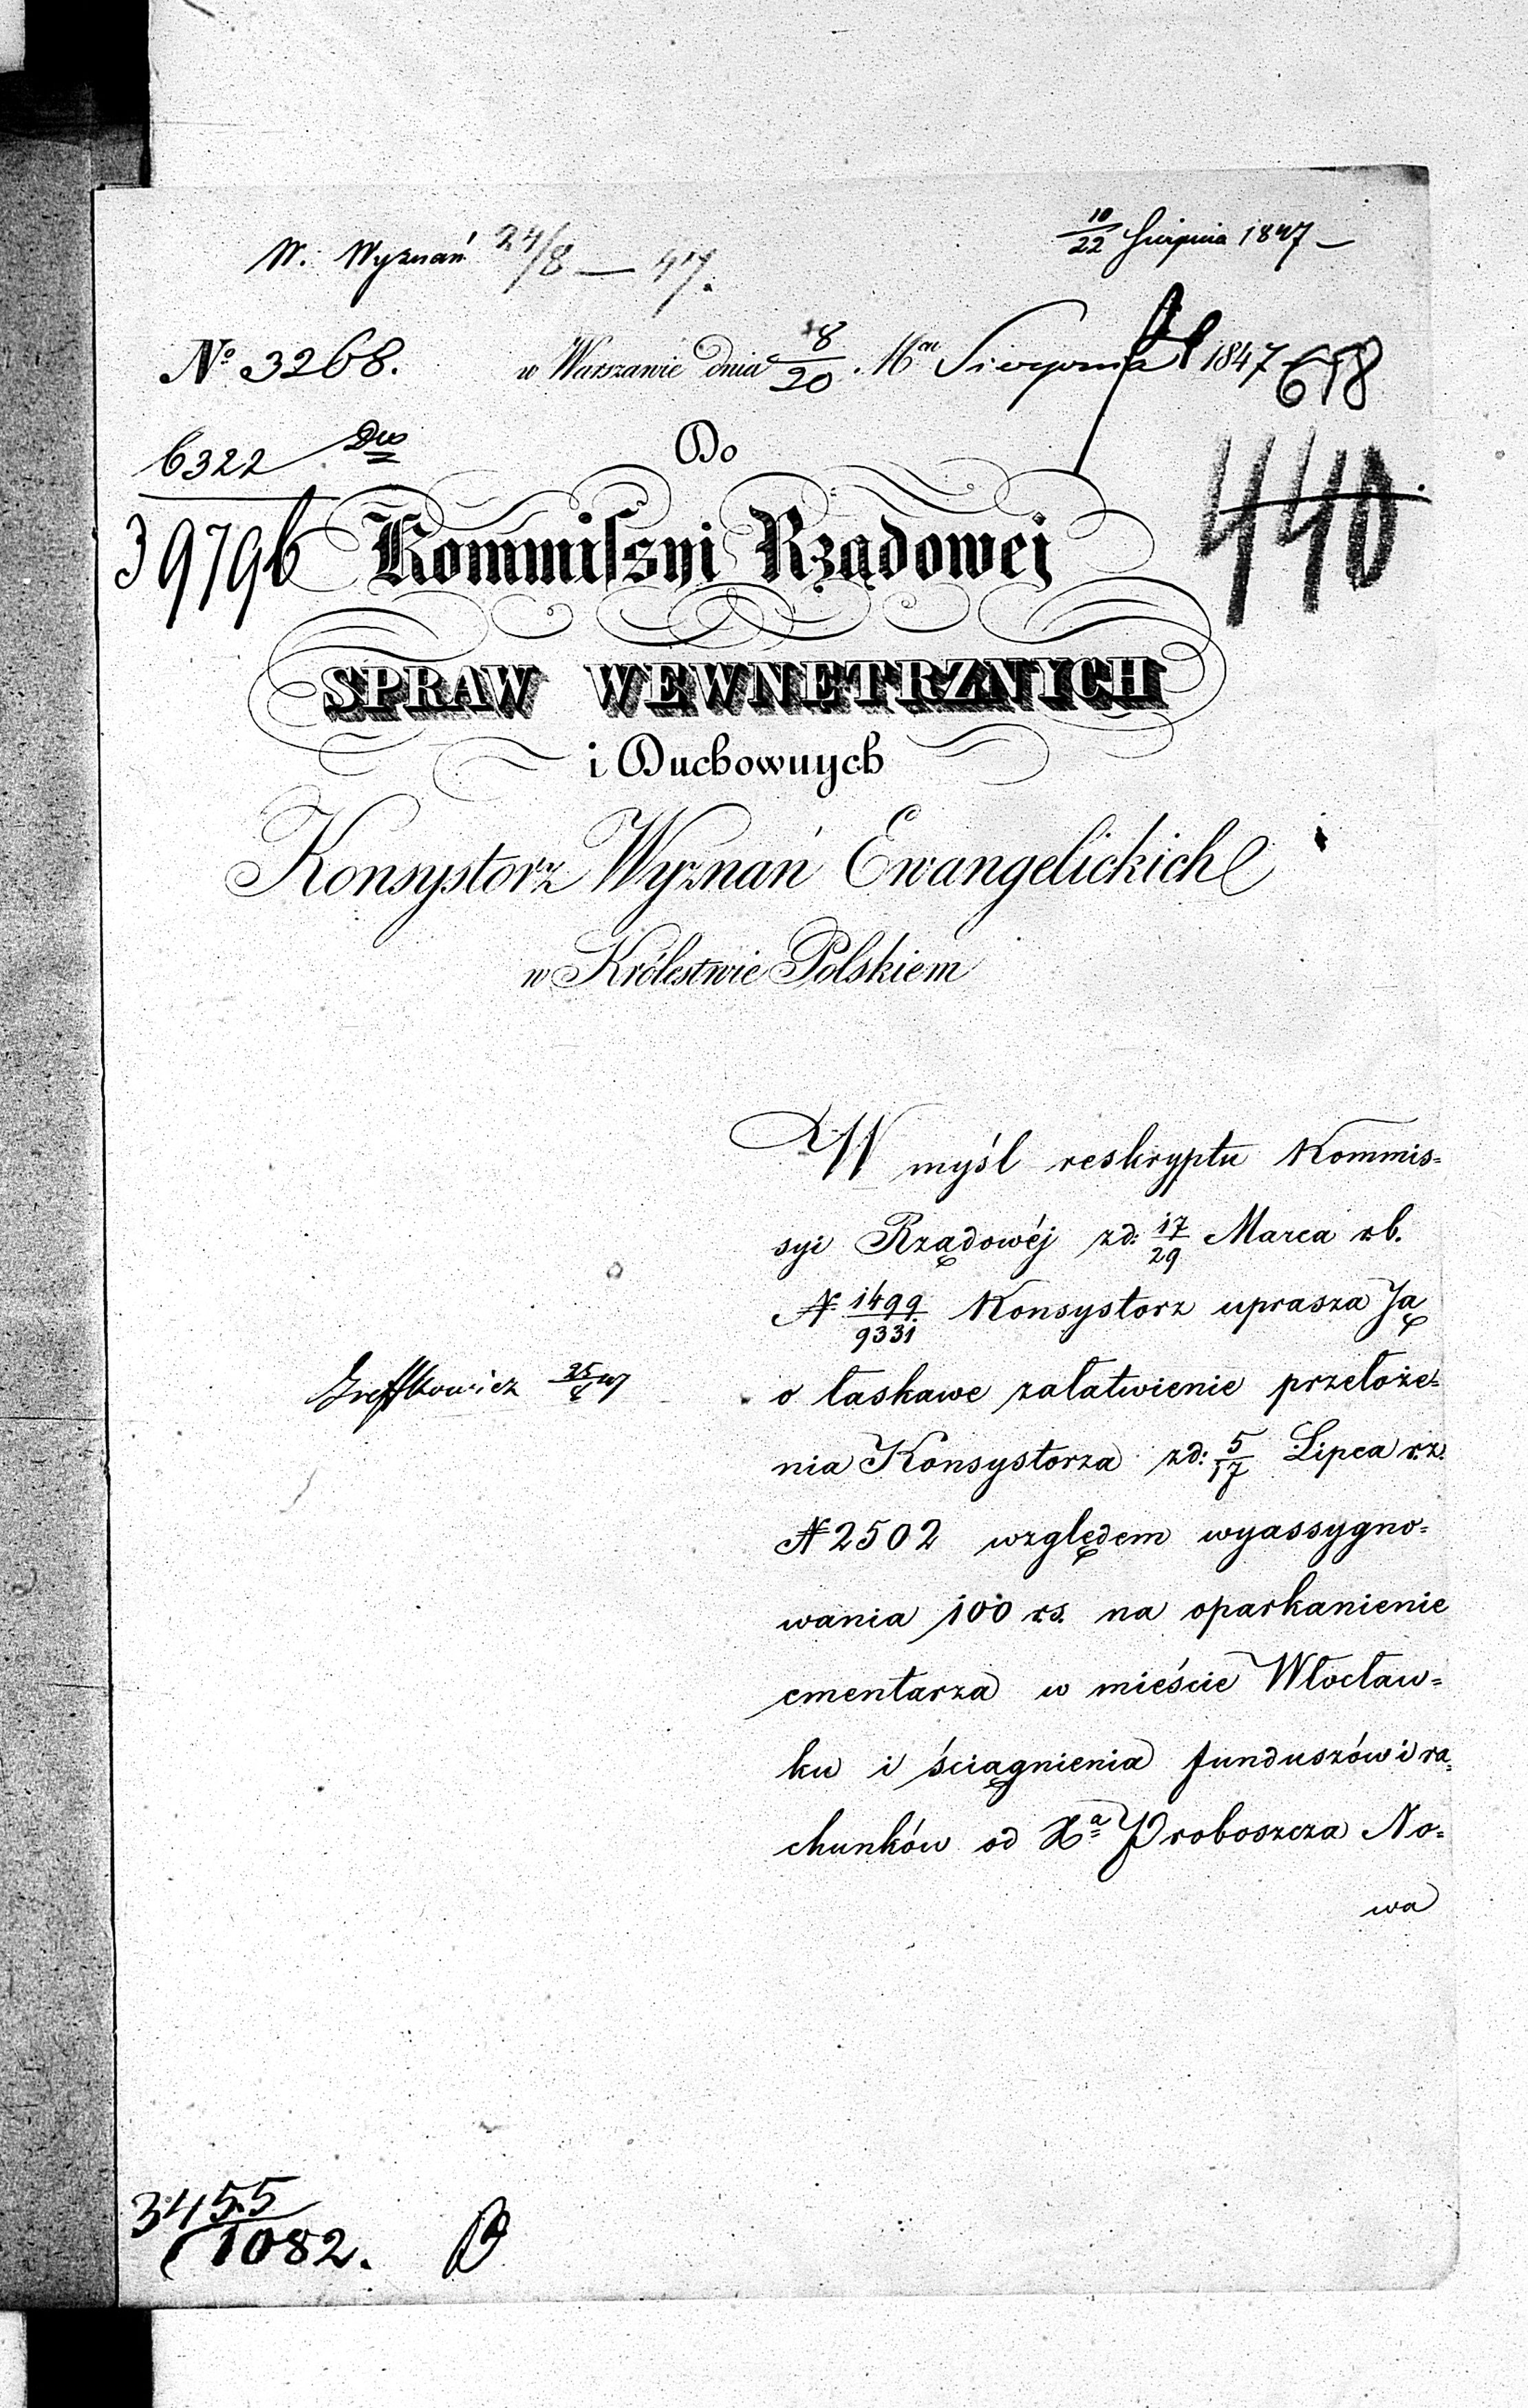 W. Wyznań 24/8 — 47.
10/22 Sierpnia 1847 —
№ 3268. w Warszawie dnia 8/20 Mca Sierpnia 1847
618
440
6322
39796
Do
Kommissyi Rządowej
SPRAW WEWNĘTRZNYCH
i Duchownych
Konsystorz Wyznań Ewangelickich
w Królestwie Polskiem
W myśl reskryptu Kommis=
syi Rządowéj zd: 17/29 Marca r.b.
№ 1499/9331 Konsystorz uprasza Ją
o łaskawe załatwienie przełoże=
nia Konsystorza zd: 5/17 Lipca r.z.
№ 2502 względem wyassygno=
wania 100 rs. na oparkanienie
cmentarza w mieście Włocław=
ku i ściągnienia funduszów i ra=
chunków od Xa Proboszcza No=
wa
3455
1082.